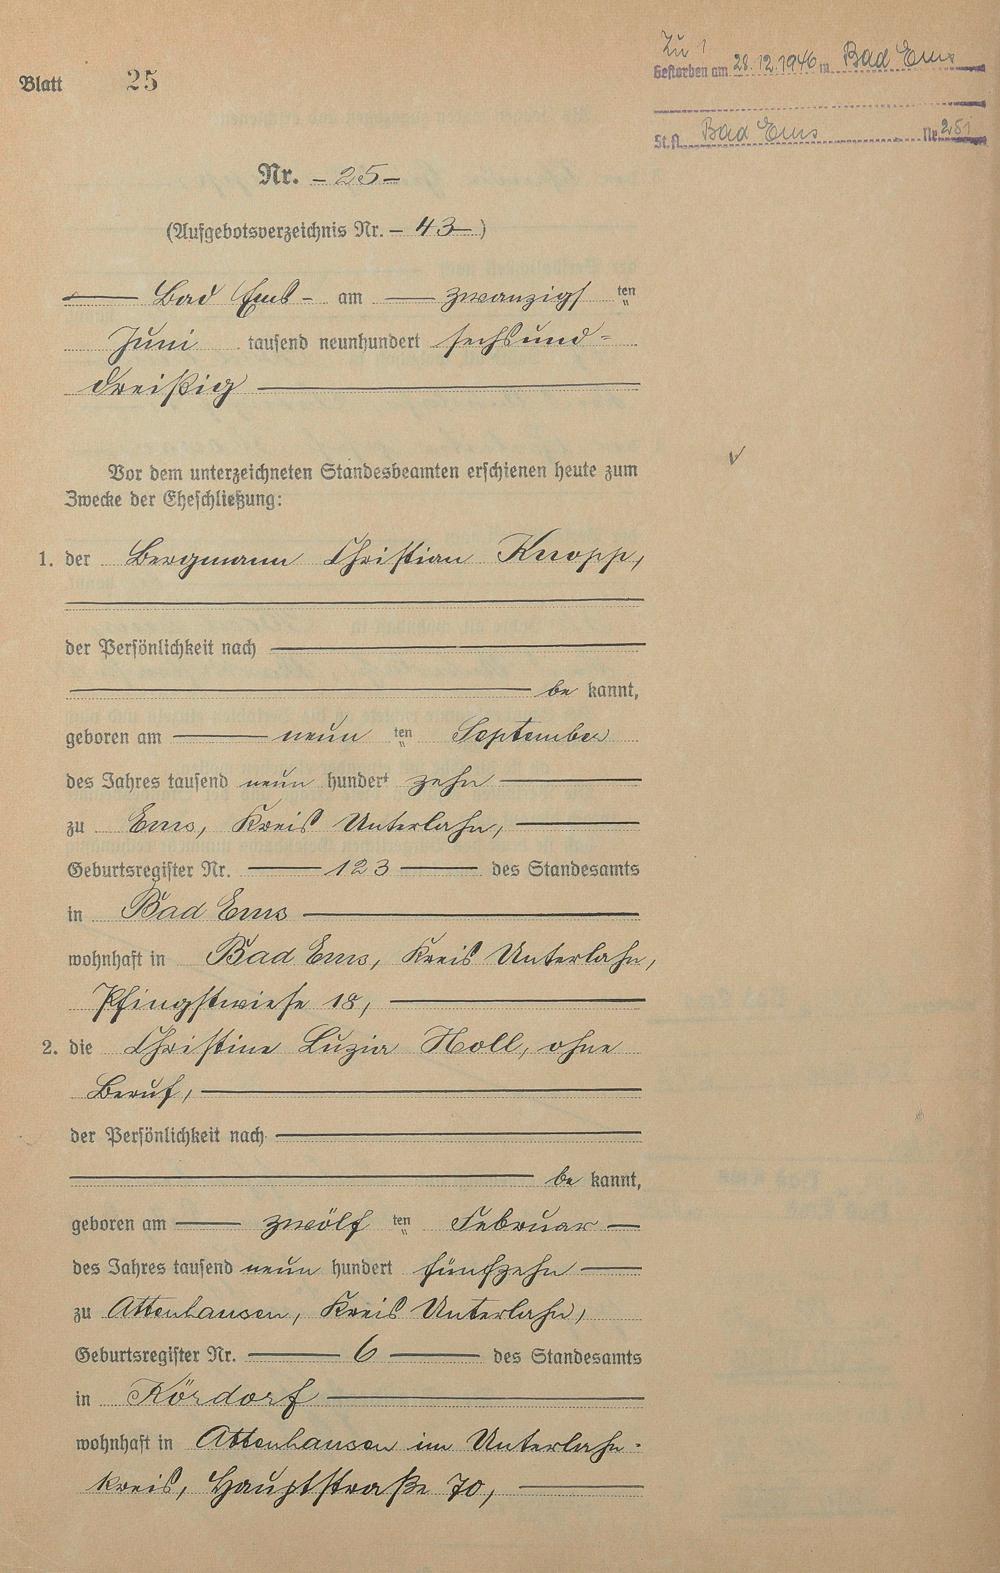 Blatt 25
Zu 1
Gestorben am 28.12.1946 in Bad Ems
St.A. Bad Ems Nr. 251
Nr. - 25 -
(Aufgebotsverzeichnis Nr. - 43 - )
Bad Ems - am zwanzigs ten
Juni tausend neunhundert sechsund-
dreißig
Vor dem unterzeichneten Standesbeamten erschienen heute zum
Zwecke der Eheschließung:
1. der Bergmann Christian Knopp,
der Persönlichkeit nach
be kannt,
geboren am neun ten September
des Jahres tausend neun hundert zehn
zu Ems, Kreis Unterlahn,
Geburtsregister Nr. 123 des Standesamts
in Bad Ems
wohnhaft in Bad Ems, Kreis Unterlahn,
Pfingstwiese 18,
2. die Christine Luzia Noll, ohne
Beruf,
der Persönlichkeit nach
be kannt,
geboren am zwölf ten Februar
des Jahres tausend neun hundert fünfzehn
zu Attenhausen, Kreis Unterlahn,
Geburtsregister Nr. 6 des Standesamts
in Kördorf
wohnhaft in Attenhausen im Unterlahn-
kreis, Hauptstraße 70,